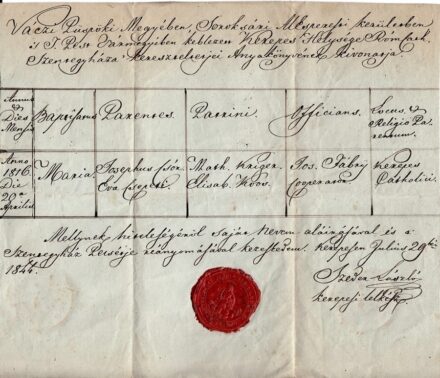 Váczi Püspöki Megyében, Soroksári Alesperesi kerületben
's T. Pest Vármegyében keblezett Kerepes Helysége Rom. Kath.
Szentegyháza keresztelterjei Anyakönyvének kivonatja.
Annus et Dies Mensis
Baptisatus
Parentes
Patrini
Officians
Locus et Religio Parentum.
Anno 1816. Die 20a Aprilis
Maria
Josephus
Eva Cseperi
Math. Kriger
Elisab. Koos
Jos. Fábry
Cooperator
Kerepes
Catholici
Mellynek hiteleségéről saját nevem aláirásával és a
Szentegyház Petsétje reányomásával kezeskedem. Kerepesen Julius 29én
184
Szeder László
kerepesi lelkész